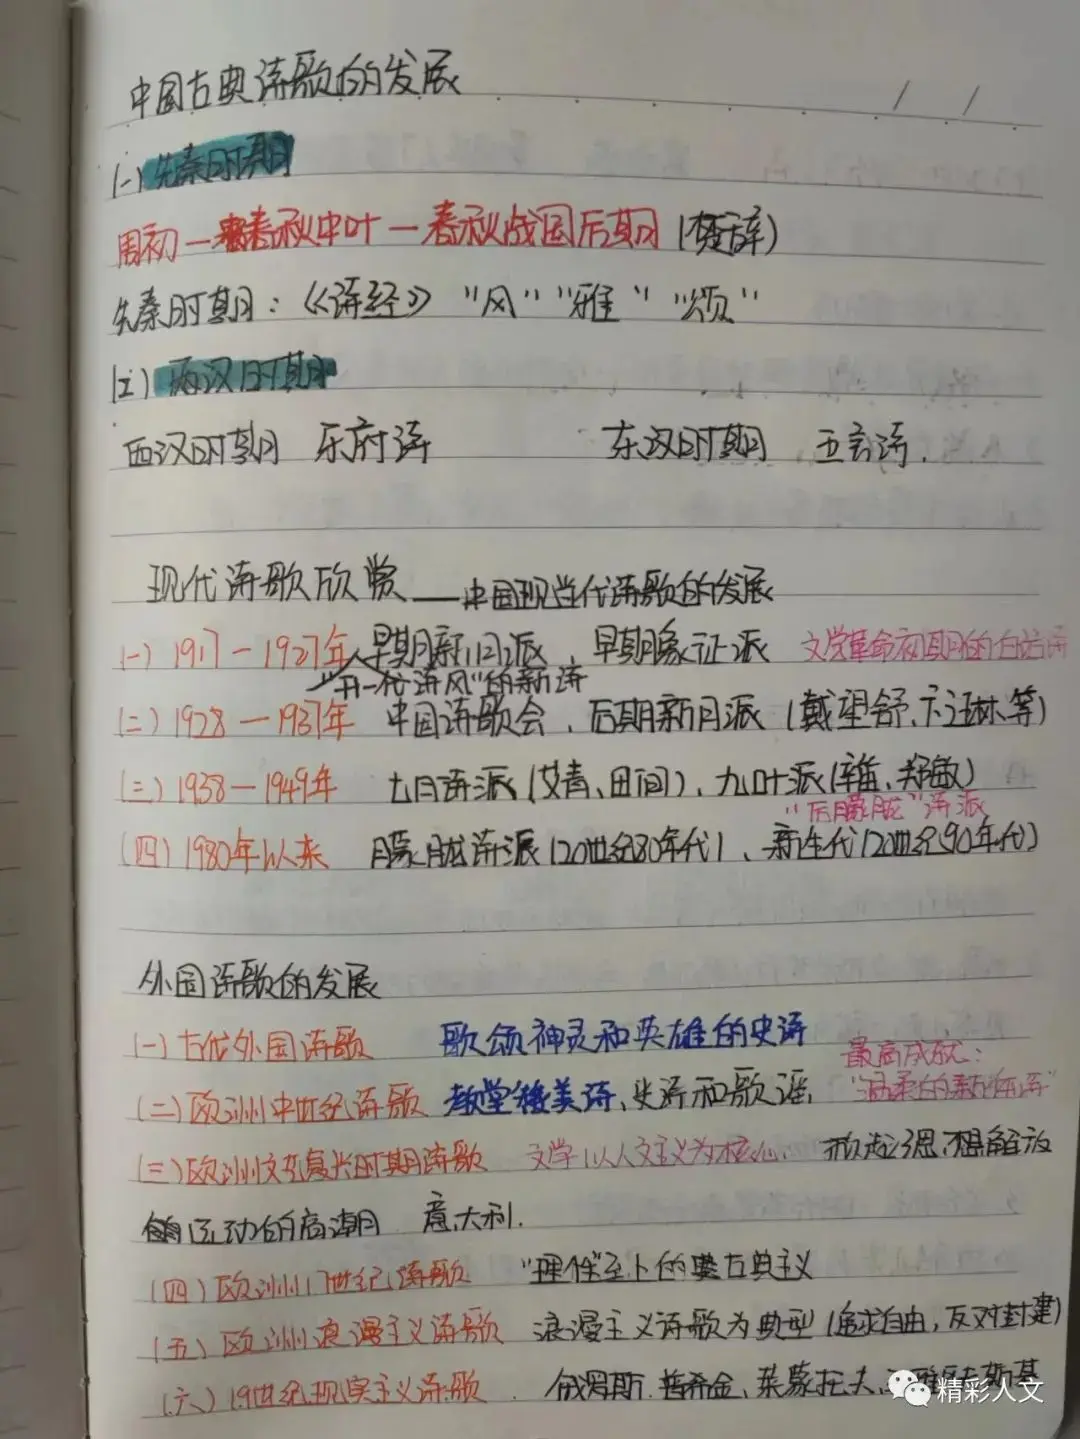 中国古典诗歌的发展
(一) 先秦时期
周初—春秋中叶—春秋战国后期 (楚辞)
先秦时期：《诗经》 "风" "雅" "颂"
(二) 两汉时期
西汉时期 乐府诗 东汉时期 五言诗.
现代诗歌欣赏——中国现当代诗歌的发展
(一) 1917—1927年 早期新月派、早期象征派 文学革命初期的白话诗
"开一代诗风"的新诗
(二) 1928—1937年 中国诗歌会、后期新月派 (戴望舒、卞之琳等)
(三) 1938—1949年 七月诗派 (艾青、田间)、九叶派 (辛笛、郑敏)
"后朦胧"诗派
(四) 1980年以来 朦胧诗派 (20世纪80年代)、新生代 (20世纪90年代)
外国诗歌的发展
(一) 古代外国诗歌 歌颂神灵和英雄的史诗
最高成就：
(二) 欧洲中世纪诗歌 教堂赞美诗、史诗和歌谣, "温柔的新体诗"
(三) 欧洲文艺复兴时期诗歌 文学以人文主义为核心. 掀起思想解放
运动的高潮 意大利.
(四) 欧洲17世纪诗歌 "理性"至上的古典主义
(五) 欧洲浪漫主义诗歌 浪漫主义诗歌为典型 (追求自由, 反对封建)
(六) 19世纪现实主义诗歌. 俄罗斯. 普希金、莱蒙托夫、斯基
精彩人文